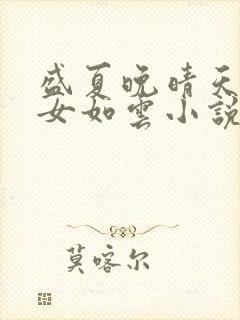 盛夏晚晴天
女如雲小說
莫喀尔